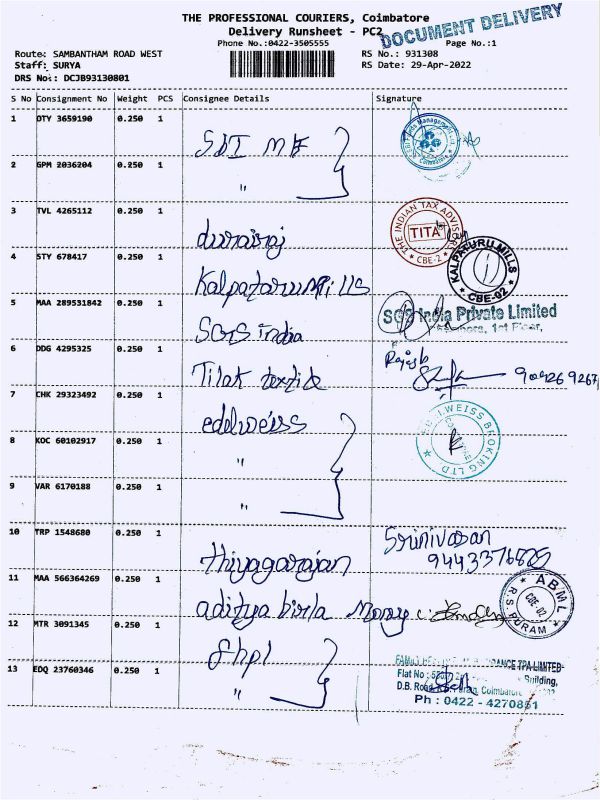 THE PROFESSIONAL COURIERS, Coimbatore
Delivery Runsheet - PC2
DOCUMENT DELIVERY
Phone No.:0422-3505555
Page No.:1
Route: SAMBANTHAM ROAD WEST
RS No.: 931308
Staff: SURYA
RS Date: 29-Apr-2022
DRS No.: DCJB93130801
S No Consignment No Weight PCS Consignee Details Signature
1 OTY 3659190 0.250 1 SBI MF
2 GPM 2036204 0.250 1 "
3 TVL 4265112 0.250 1 durairaj
THE INDIAN TAX ADVISORS
TITA
* CBE-2 *
4 STY 678417 0.250 1 Kalpataru Mills
KALPATURU MILLS
* CBE-02 *
5 MAA 289531842 0.250 1 SGS india
SGS India Private Limited
1st Floor,
6 DDG 4295325 0.250 1 Tilak textile
Rajesh
7 CHK 29323492 0.250 1 edelweiss
BROKING LTD.
8 KOC 60102917 0.250 1 "
9 VAR 6170188 0.250 1 "
10 TRP 1548680 0.250 1 thiyagarajan
Srinivasan
11 MAA 566364269 0.250 1 aditya birla Money
ABML
CBE-02
R.S. PURAM
12 MTR 3091345 0.250 1 fhpl
13 EDQ 23760346 0.250 1 "
TPA LIMITED
Flat No : Building,
D.B. Road, Coimbatore
Ph : 0422 - 4270851